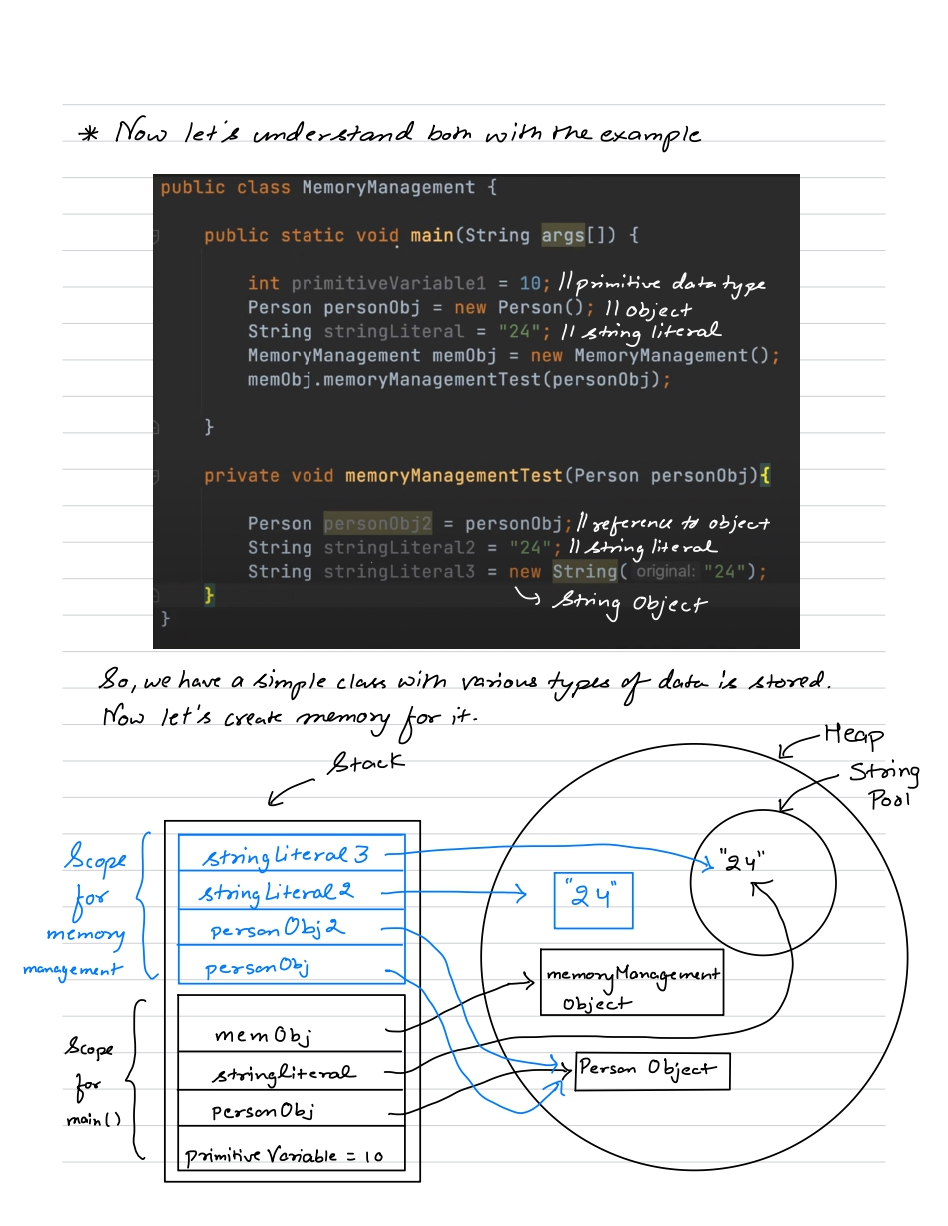 * Now let's understand both with the example
public class MemoryManagement {
public static void main(String args[]) {
int primitiveVariable1 = 10; // primitive data type
Person personObj = new Person(); // object
String stringLiteral = "24"; // string literal
MemoryManagement memObj = new MemoryManagement();
memObj.memoryManagementTest(personObj);
}
private void memoryManagementTest(Person personObj){
Person personObj2 = personObj; // reference to object
String stringLiteral2 = "24"; // string literal
String stringLiteral3 = new String( original: "24");
}
String Object
}
So, we have a simple class with various types of data is stored.
Now let's create memory for it.
Stack
Heap
String
Pool
Scope
for
memory
management
stringLiteral 3
stringLiteral 2
person Obj 2
person Obj
"24"
"24"
memoryManagement
Object
Person Object
Scope
for
main()
mem Obj
stringliteral
person Obj
primitive Variable = 10